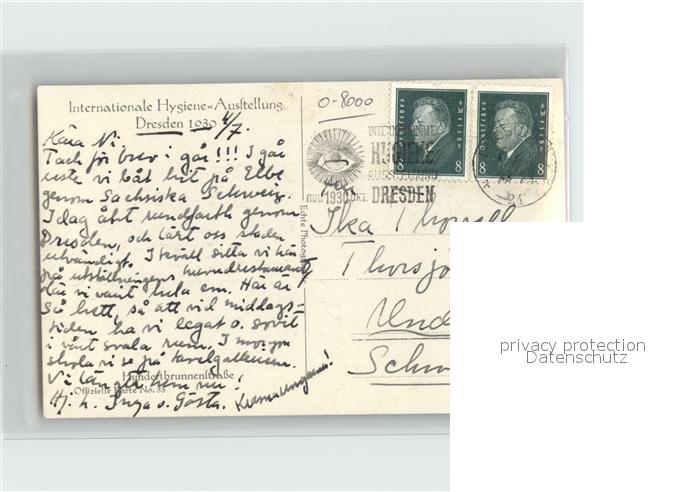 Internationale Hygiene=Ausstellung
Dresden 1930 4/7.
Kära Ni.
Tack för brev i går!!! I går
reste vi båt hit på Elbe
genom Sachsiska Schweiz.
I dag åkt rundfarth genom
Dresden, och lärt oss staden
utvändigt. I kväll sitta vi här
på utställningens huvudrestaurant
där vi varit hela em. Här är
så hett, så att vid middags-
tiden ha vi legat o. sovit
i vårt svala rum. I morgon
skola vi se på tavelgallerierna.
Hundertbrunnenstraße
Vi längta hem nu!
Offizielle Karte No. 33
Hj. h. Inga o. Gösta.
0-8000
Deutsches Reich
8
Deutsches Reich
8
INTERNATIONALE
HYGIENE
AUSSTELLUNG
MAI 1930 OKT. DRESDEN
Echte Photographie
Ska
Thorsjö
Und
Schw
privacy protection
Datenschutz